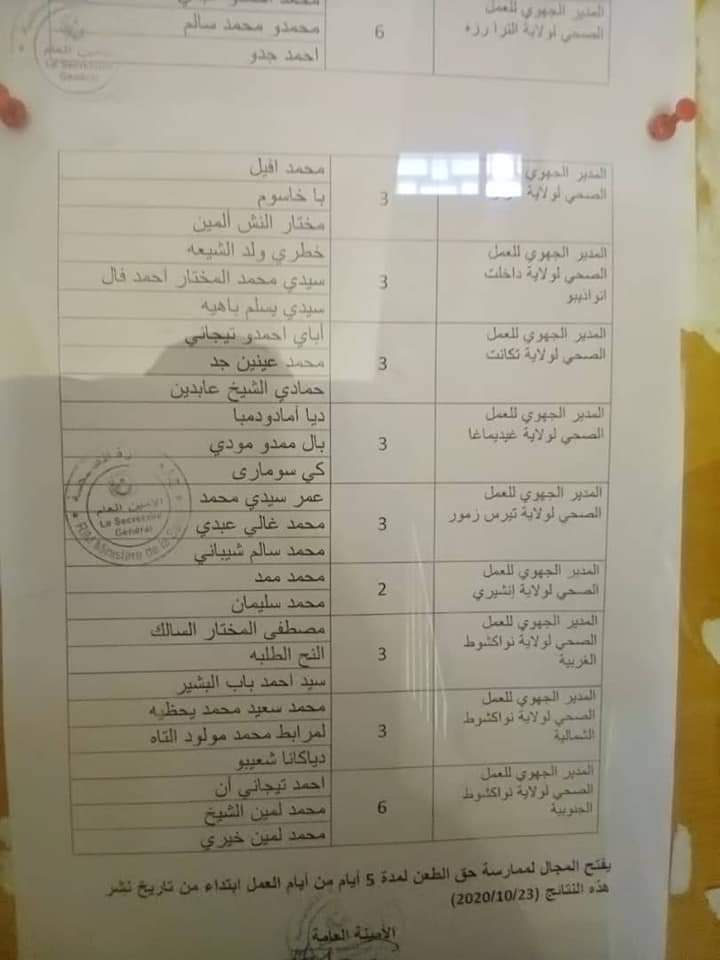 المدير الجهوي للعمل
الصحي لولاية الترارزه
6
محمدو محمد سالم
احمد جدو
La Secrétaire
Général
المدير الجهوي للعمل
الصحي لولاية
3
محمد افيل
با خاسوم
مختار النش ألمين
المدير الجهوي للعمل
الصحي لولاية داخلت
انواذيبو
3
خطري ولد الشيعه
سيدي محمد المختار أحمد فال
سيدي يسلم باهيه
المدير الجهوي للعمل
الصحي لولاية تكانت
3
أباي احمدو تيجاني
محمد عينين جد
حمادي الشيخ عابدين
المدير الجهوي للعمل
الصحي لولاية غيديماغا
3
ديا أمادودمبا
بال ممدو مودي
كي سوماري
المدير الجهوي للعمل
الصحي لولاية تيرس زمور
3
عمر سيدي محمد
محمد غالي عبدي
محمد سالم شيباني
الأمين العام
Le Secrétaire
Général
RIM Ministère de la
المدير الجهوي للعمل
الصحي لولاية إنشيري
2
محمد ممد
محمد سليمان
المدير الجهوي للعمل
الصحي لولاية نواكشوط
الغربية
3
مصطفى المختار السالك
النح الطلبه
سيد أحمد باب البشير
المدير الجهوي للعمل
الصحي لولاية نواكشوط
الشمالية
3
محمد سعيد محمد يحظيه
لمرابط محمد مولود التاه
دياكانا شعيبو
المدير الجهوي للعمل
الصحي لولاية نواكشوط
الجنوبية
6
احمد تيجاني آن
محمد لمين الشيخ
محمد لمين خيري
يفتح المجال لممارسة حق الطعن لمدة 5 أيام من أيام العمل ابتداء من تاريخ نشر
هذه النتائج (2020/10/23)
الأمينة العامة